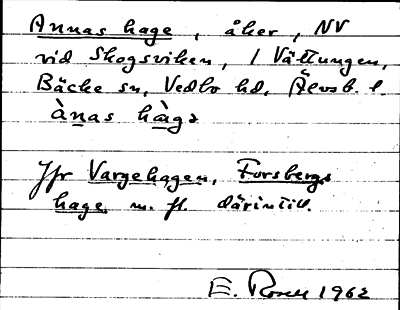 Annas hage, åker, NV
vid Skogsviken, i Vättungen,
Bäcke sn, Vedbo hd, Älvsb. l.
ànas hàga
Jfr Vargehagen, Forsbergs
hage m. fl. därintill.
E. Rosell 1962